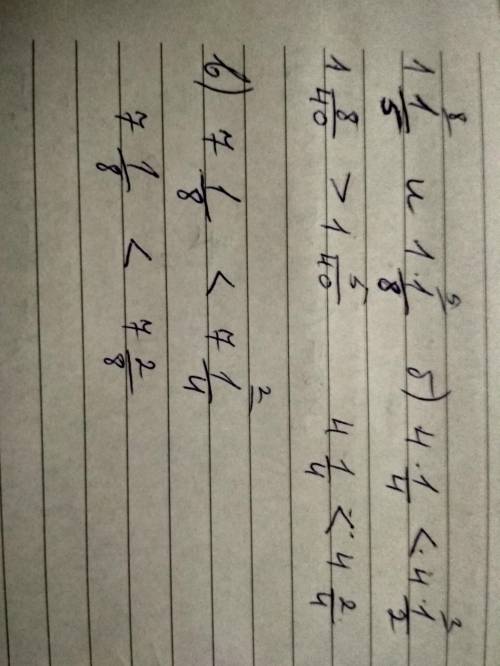 1 1/5 ⁸ и 1 1/8 ⁵ б) 4 1/4 < 4 1/2 ²
1 8/40 > 1 5/40 4 1/4 < 4 2/4
в) 7 1/8 < 7 1/4 ²
7 1/8 < 7 2/8